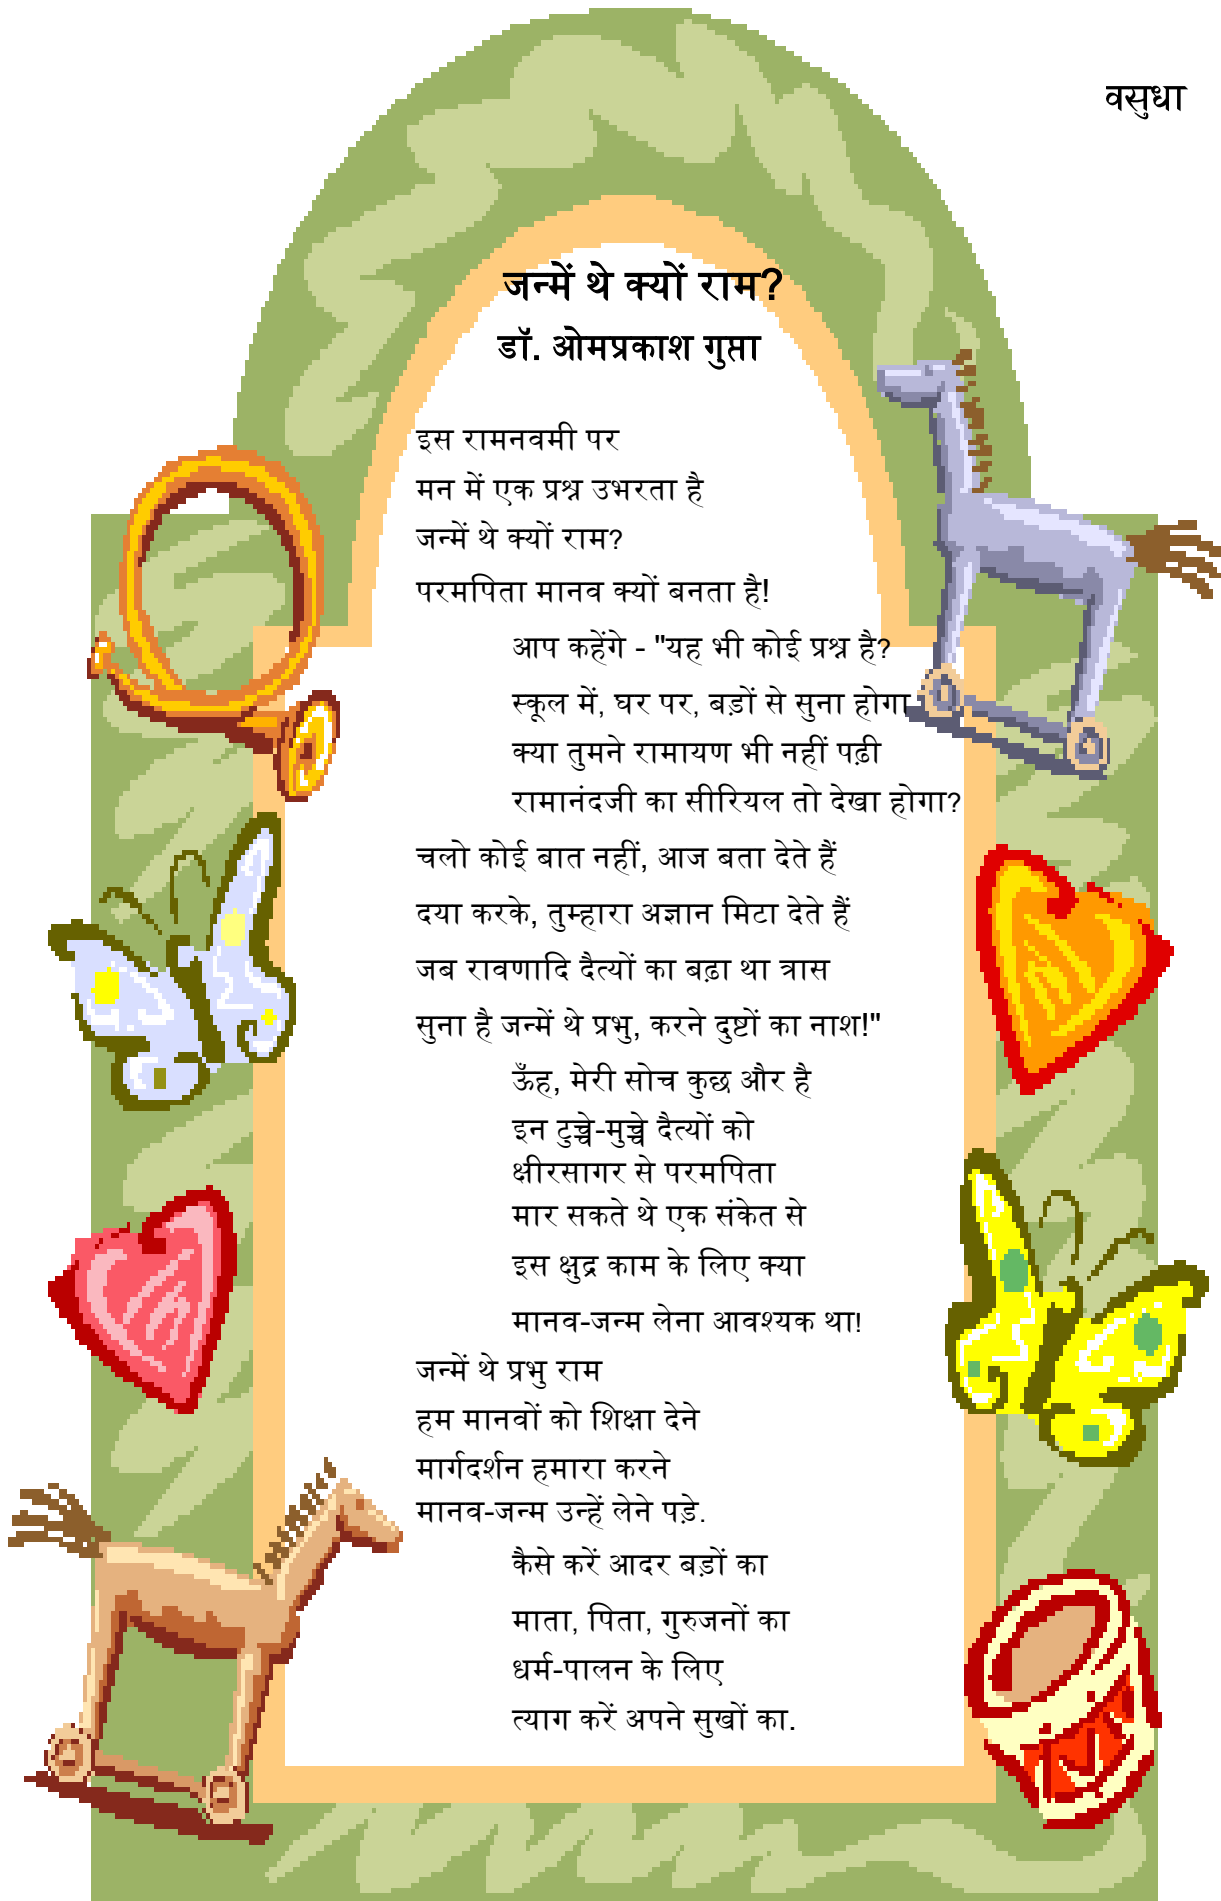 वसुधा
जन्में थे क्यों राम?
डॉ. ओमप्रकाश गुप्ता
इस रामनवमी पर
मन में एक प्रश्न उभरता है
जन्में थे क्यों राम?
परमपिता मानव क्यों बनता है!
आप कहेंगे - "यह भी कोई प्रश्न है?
स्कूल में, घर पर, बड़ों से सुना होगा
क्या तुमने रामायण भी नहीं पढ़ी
रामानंदजी का सीरियल तो देखा होगा?
चलो कोई बात नहीं, आज बता देते हैं
दया करके, तुम्हारा अज्ञान मिटा देते हैं
जब रावणादि दैत्यों का बढ़ा था त्रास
सुना है जन्में थे प्रभु, करने दुष्टों का नाश!"
ऊँह, मेरी सोच कुछ और है
इन टुच्चे-मुच्चे दैत्यों को
क्षीरसागर से परमपिता
मार सकते थे एक संकेत से
इस क्षुद्र काम के लिए क्या
मानव-जन्म लेना आवश्यक था!
जन्में थे प्रभु राम
हम मानवों को शिक्षा देने
मार्गदर्शन हमारा करने
मानव-जन्म उन्हें लेने पड़े.
कैसे करें आदर बड़ों का
माता, पिता, गुरुजनों का
धर्म-पालन के लिए
त्याग करें अपने सुखों का.